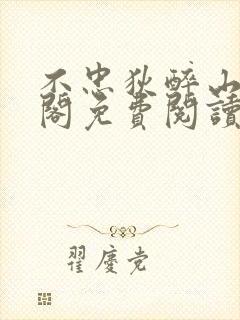 不忠狄醉山
閣免費閱讀
翟慶党